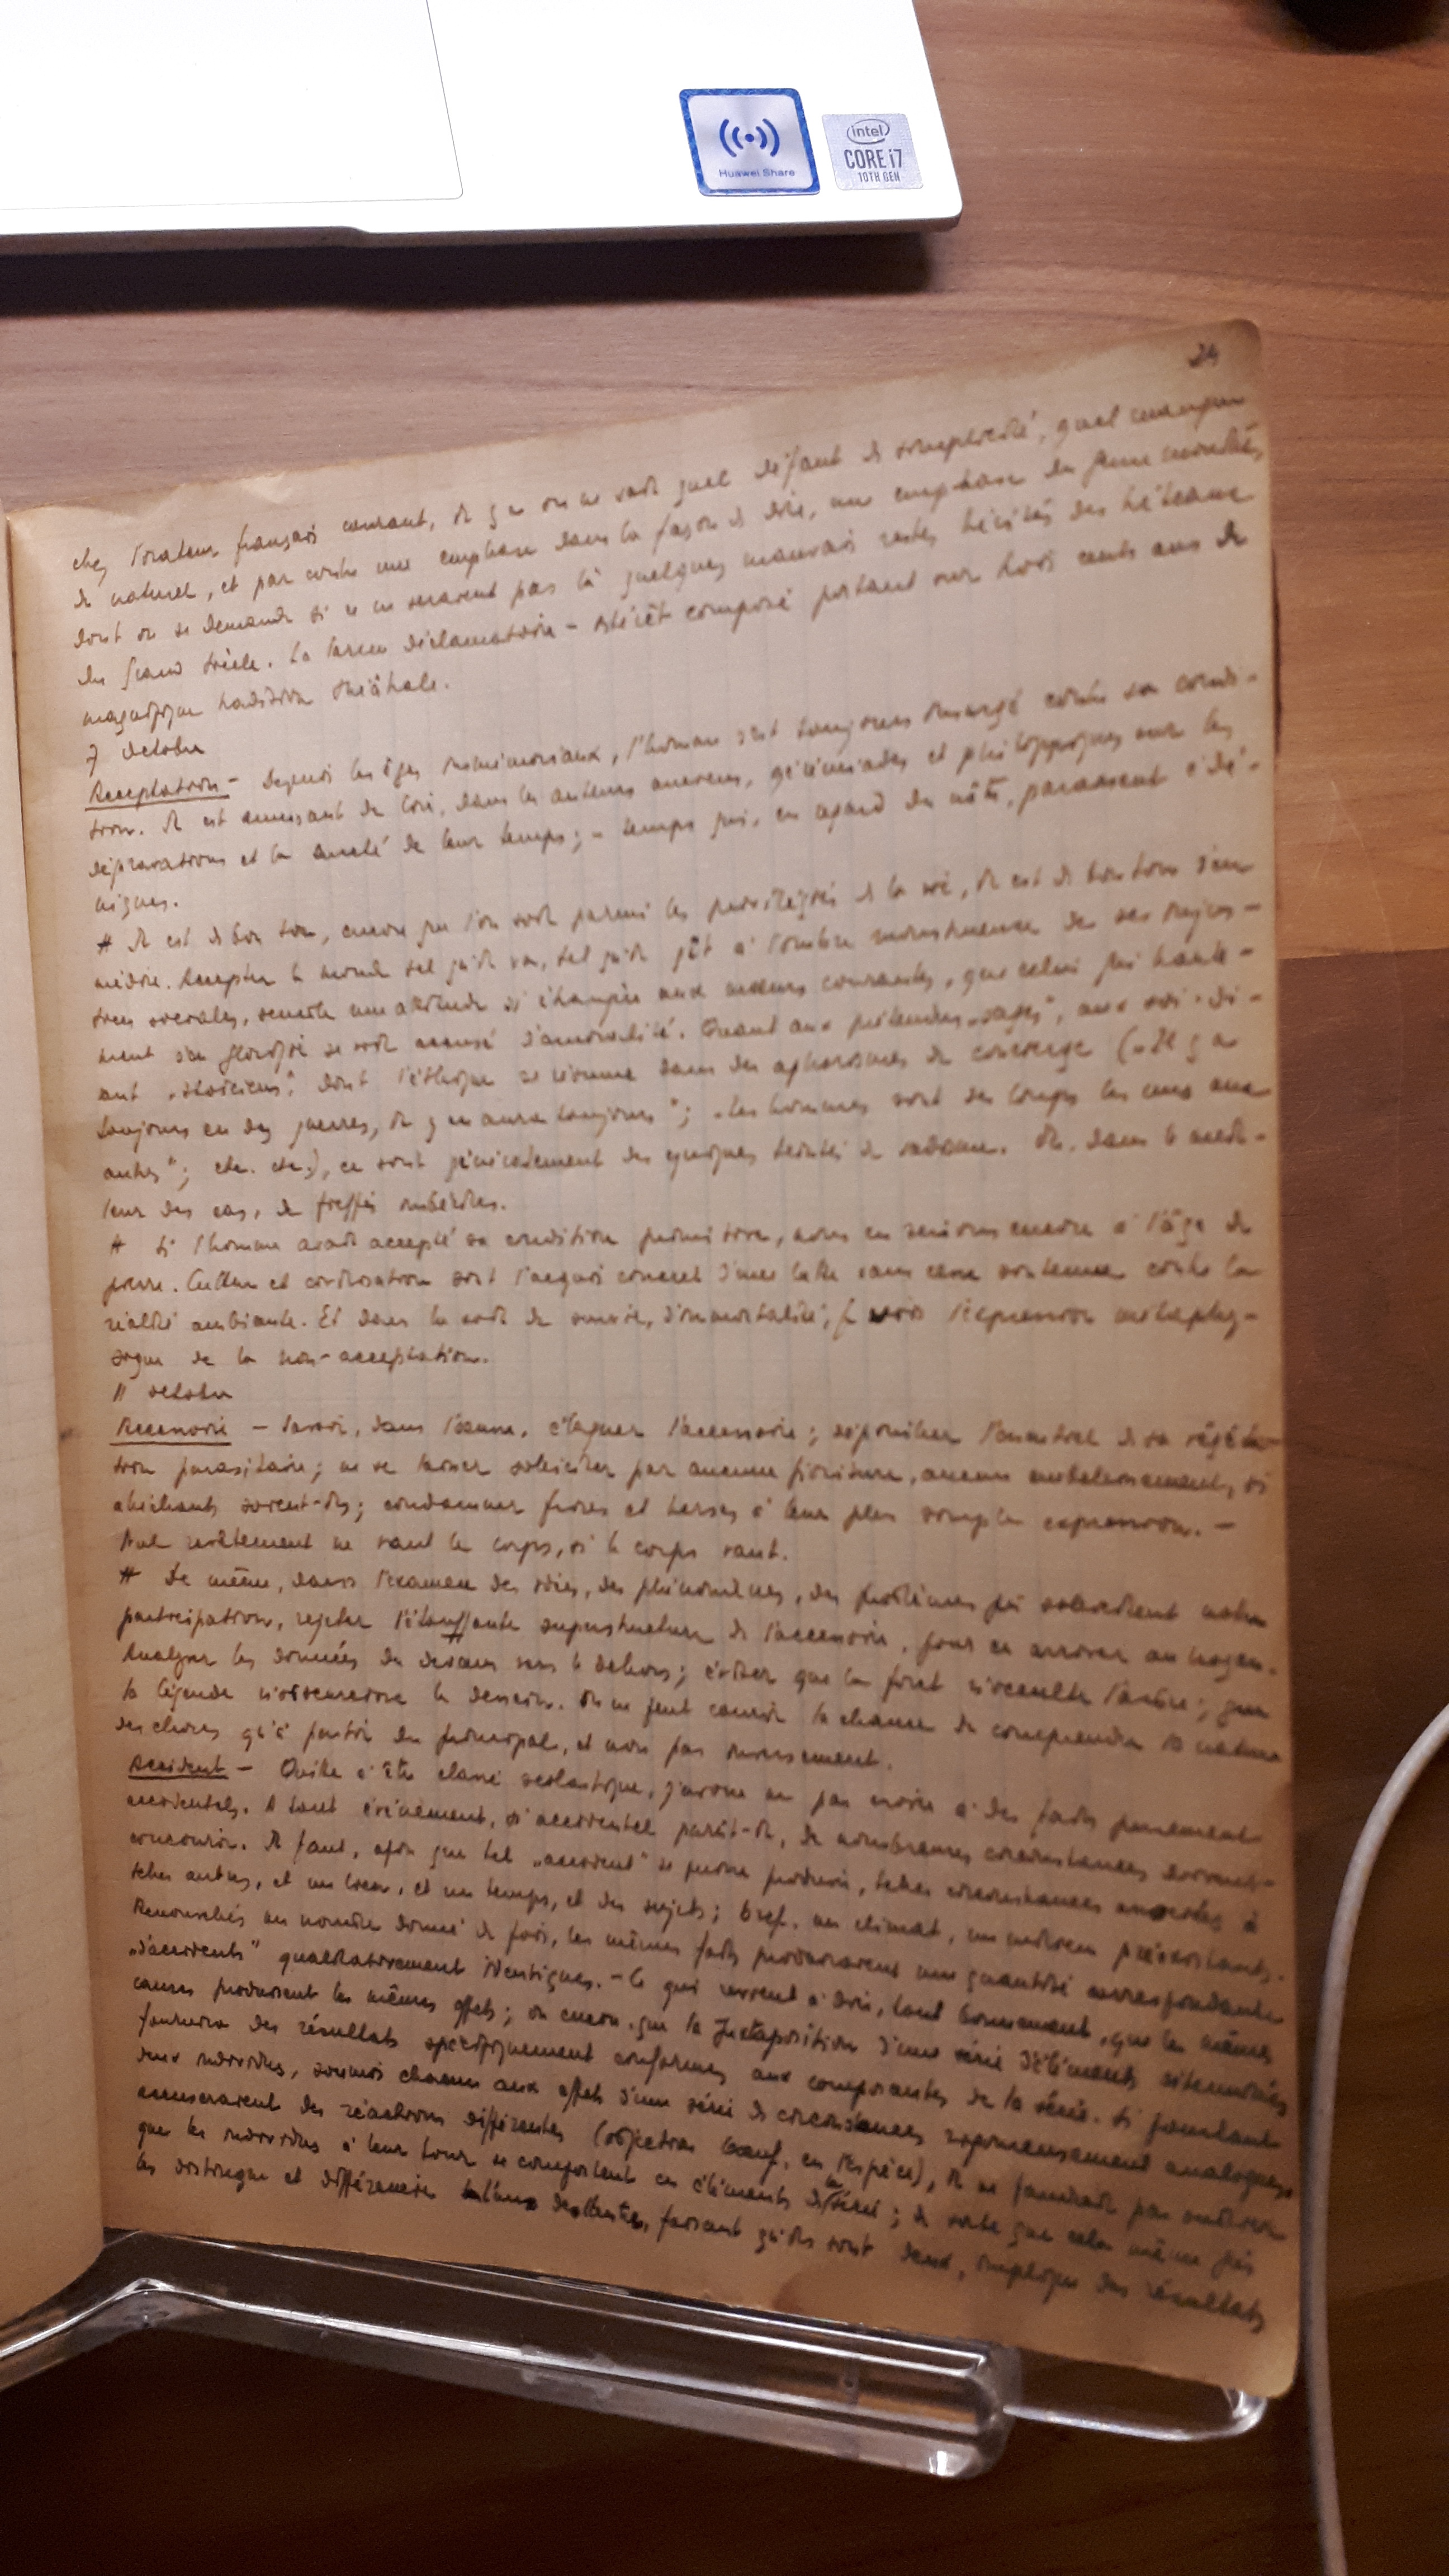 Huawei Share
intel
CORE i7
10TH GEN
24
chez l'orateur français courant, il y a on ne sait quel défaut de simplicité, quel manque
de naturel, et par contre une emphase dans la façon de dire, une emphase du
dont on se demande si ce ne seraient pas là quelques mauvais restes hérités des
du grand siècle. La déclamatoire - intérêt composé portant sur trois cents ans de
magnifique tradition théâtrale.
7 octobre
Acceptation - Depuis les âges immémoriaux, l'homme s'est toujours insurgé contre sa condi-
tion. Il est amusant de lire, dans les auteurs anciens, jérémiades et philippiques sur les
dépravations et la cruauté de leur temps; - temps qui, en regard du nôtre, paraissent idyl-
liques.
# Il est de bon ton, encore que l'on soit parmi les privilégiés de la vie, il est de bon ton d'en
médire. Accepter le monde tel qu'il va, tel qu'il gît à l'ombre monstrueuse de ses injus-
tices sociales, semble une attitude si étrangère aux mœurs courantes, que celui qui haute-
ment s'en glorifie se voit accusé d'amoralité. Quant aux prétendus „sages", aux soi-di-
sant „stoïciens", dont l'éthique se résume dans des aphorismes de concierge („Il y a
toujours eu des guerres, il y en aura toujours"; „les hommes sont des loups les uns aux
autres"; etc. etc.), ce sont généralement des cyniques teintés de sadisme. Ou, dans le meil-
leur des cas, de fieffés imbéciles.
# Si l'homme avait accepté sa condition primitive, nous en serions encore à l'âge de
pierre. Culture et civilisation sont l'acquis concret d'une lutte sans cesse soutenue contre la
réalité ambiante. Et dans la soif de survie, d'immortalité, je vois l'expression métaphy-
sique de la non-acceptation.
11 octobre
Accessoire - Savoir, dans l'œuvre, élaguer l'accessoire; dépouiller l'essentiel de sa végéta-
tion parasitaire; ne se laisser solliciter par aucune fioriture, aucun embellissement, si
alléchants soient-ils; condamner proses et verses à leur plus simple expression. -
Nul revêtement ne vaut le corps, si le corps vaut.
# De même, dans l'examen des idées, des phénomènes, des problèmes qui sollicitent notre
participation, rejeter l'étouffante superstructure de l'accessoire, pour en arriver au noyau.
Analyser les données du dedans vers le dehors; éviter que la forêt n'occulte l'arbre; que
la légende n'obscurcisse le dessin. On ne peut courir la chance de comprendre la nature
des choses qu'à partir du principal, et non pas inversement.
Accident - Quitte à être classé scolastique, j'avoue ne pas croire à des faits purement
accidentels. A tout événement, si accidentel paraît-il, de nombreuses circonstances doivent
concourir. Il faut, afin que tel „accident" se puisse produire, telles circonstances ancrées à
telles autres, et un lieu, et un temps, et des sujets; bref, un climat, un milieu préexistants.
Renouvelés un nombre donné de fois, les mêmes faits produiraient une quantité correspondante
„d'accidents" qualitativement identiques. - Ce qui revient à dire, tout bonnement, que les mêmes
causes produisent les mêmes effets; ou encore, que la juxtaposition d'une série d'éléments
fournira des résultats spécifiquement conformes aux composantes de la série. Si pourtant
deux individus, soumis chacun aux effets d'une série de circonstances rigoureusement analogues,
accuseraient des réactions différentes (objection bœuf, en l'espèce), il ne faudrait pas oublier
que les individus à leur tour se comportent en éléments de la série; de sorte que cela même qui
les distingue et différencie l'un de l'autre, faisant qu'ils sont deux, implique des résultats